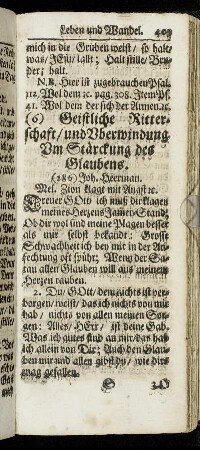 Leben und Wandel. 409
mich in die Gruben weist / so halt
was / JEsu / last; Halt stille / Bru-
der; halt.
N.B. Hier ist zugebrauchen Psal.
112. Wol dem ꝛc. pag. 308. Item Ps.
41. Wol dem der sich der Armen ꝛc.
(6) Geistliche Ritter-
schaft / und Vberwindung
Vm Stärckung des
Glaubens.
(286) Joh. Heerman.
Mel. Zion klagt mit Angst ꝛc.
TReuer GOtt ich muß dir klagen
meines Hertzens Jamer-Stand;
Ob dir wol sind meine Plagen besser
als mir selbst bekandt: Grosse
Schwachheit ich bey mir in der An-
fechtung oft spühr; Wenn der Sa-
tan allen Glauben will aus meinem
Hertzen rauben.
2. Du / GOtt / dem nichts ist ver-
borgen / weist / das ich nichts von mir
hab / nichts von allen meinen Sor-
gen: Alles / HErr / ist deine Gab.
Was ich gutes find an mir / das hab
ich allein von Dir; Auch den Glau-
ben mir und allen gibst du / wie dirs
mag gefallen.